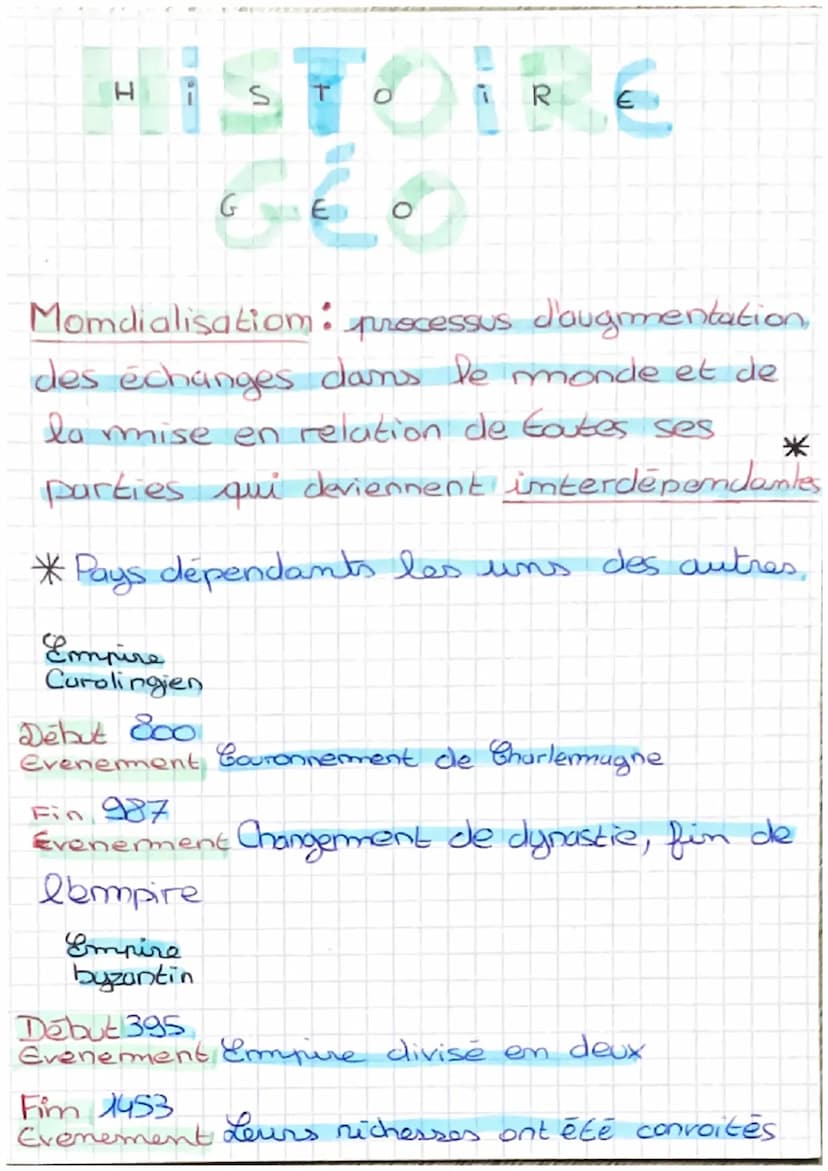 HiSTOiRE
GÉO
Mondialisation : processus d'augmentation
des échanges dans le monde et de
la mise en relation de toutes ses
parties qui deviennent interdépendantes *
* Pays dépendants les uns des autres.
Empire
Carolingien
Début 800
Evenement Couronnement de Charlemagne
Fin 987
Evenement Changement de dynastie, fin de
l'empire
Empire
byzantin
Début 395
Evenement Empire divisé en deux
Fin 1453
Evenement Leurs richesses ont été convoités